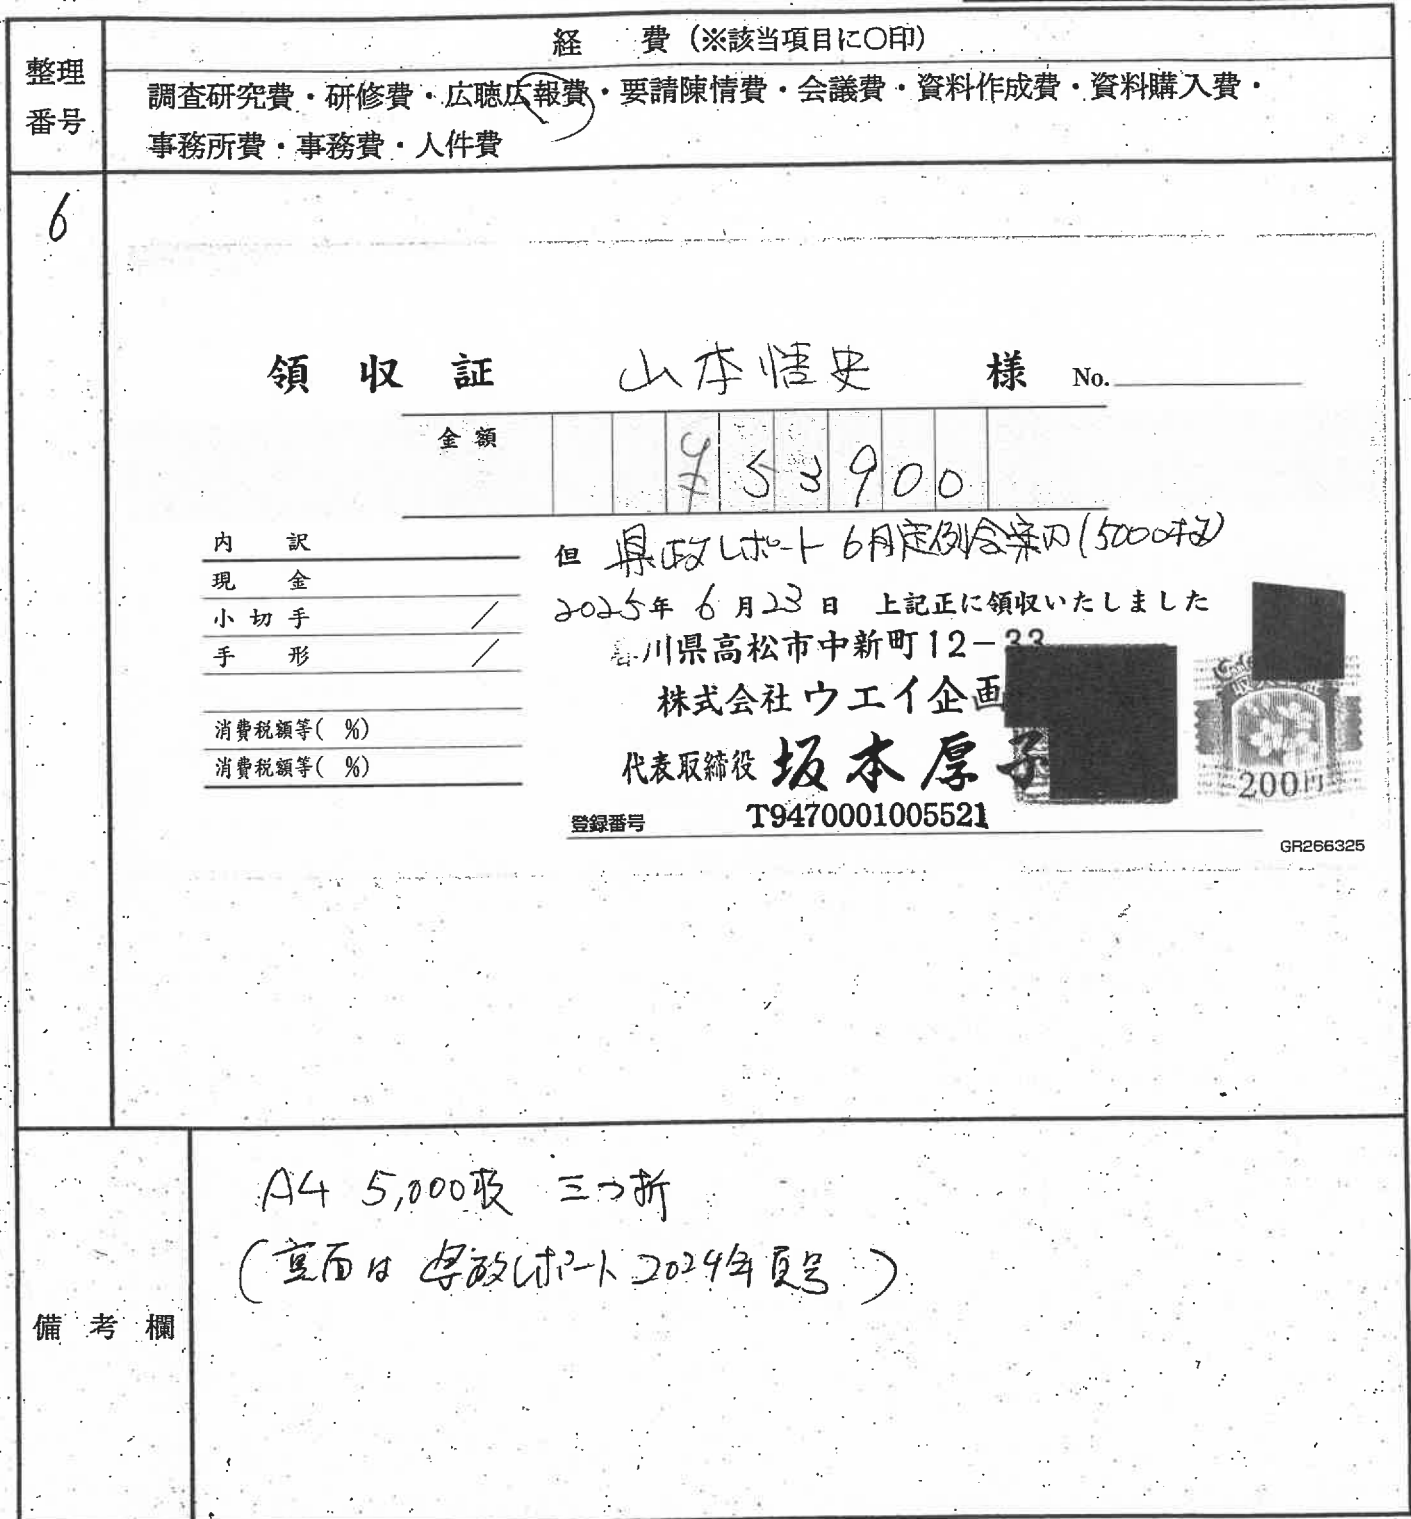 経　費（※該当項目に〇印）
整理番号
調査研究費・研修費・広聴広報費・要請陳情費・会議費・資料作成費・資料購入費・
事務所費・事務費・人件費
6
領収証 山本悟史 様 No.
金額 ¥53900
内訳
現金
小切手 /
手形 /
消費税額等( %)
消費税額等( %)
但 県政レポート6月定例会案内(5000枚)
2025年6月23日 上記正に領収いたしました
香川県高松市中新町12-33
株式会社ウエイ企画
代表取締役 坂本厚子
登録番号 T9470001005521
200円
GR266325
備考欄
A4 5,000枚 三つ折
(裏面は県政レポート2024年夏号)